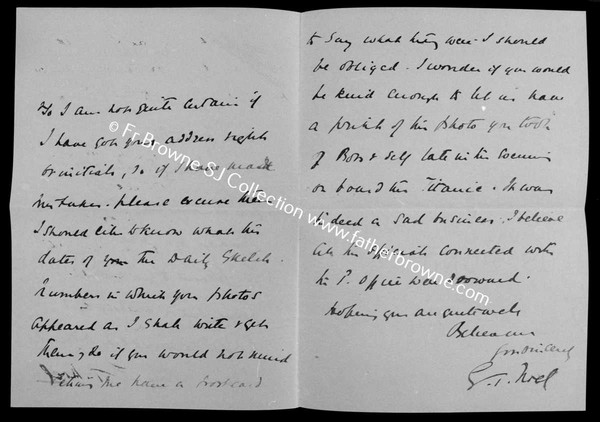 So I am not quite certain if
I have got your address right
or initials, so if I have made
mistakes. please excuse them
I should like to know what the
dates of your the Daily Sketch
numbers in which your photos
appeared as I shall write & get
them, & if you would not mind
letting me have a postcard
to say what they were I should
be obliged. I wonder if you would
be kind enough to let us have
a print of the photo you took
of Boss & self late in the evening
on board the Titanic. It was
indeed a sad business. I believe
all the officials connected with
the P. Office were drowned.
Hoping you are quite well
Believe me
Yours sincerely
G. T. Noel
© Fr Browne SJ Collection www.fatherbrowne.com